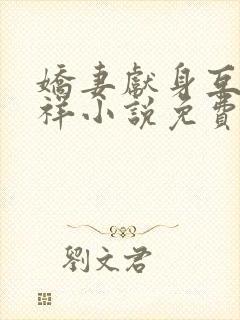 嬌妻獻身互
祥小說免費
劉文君